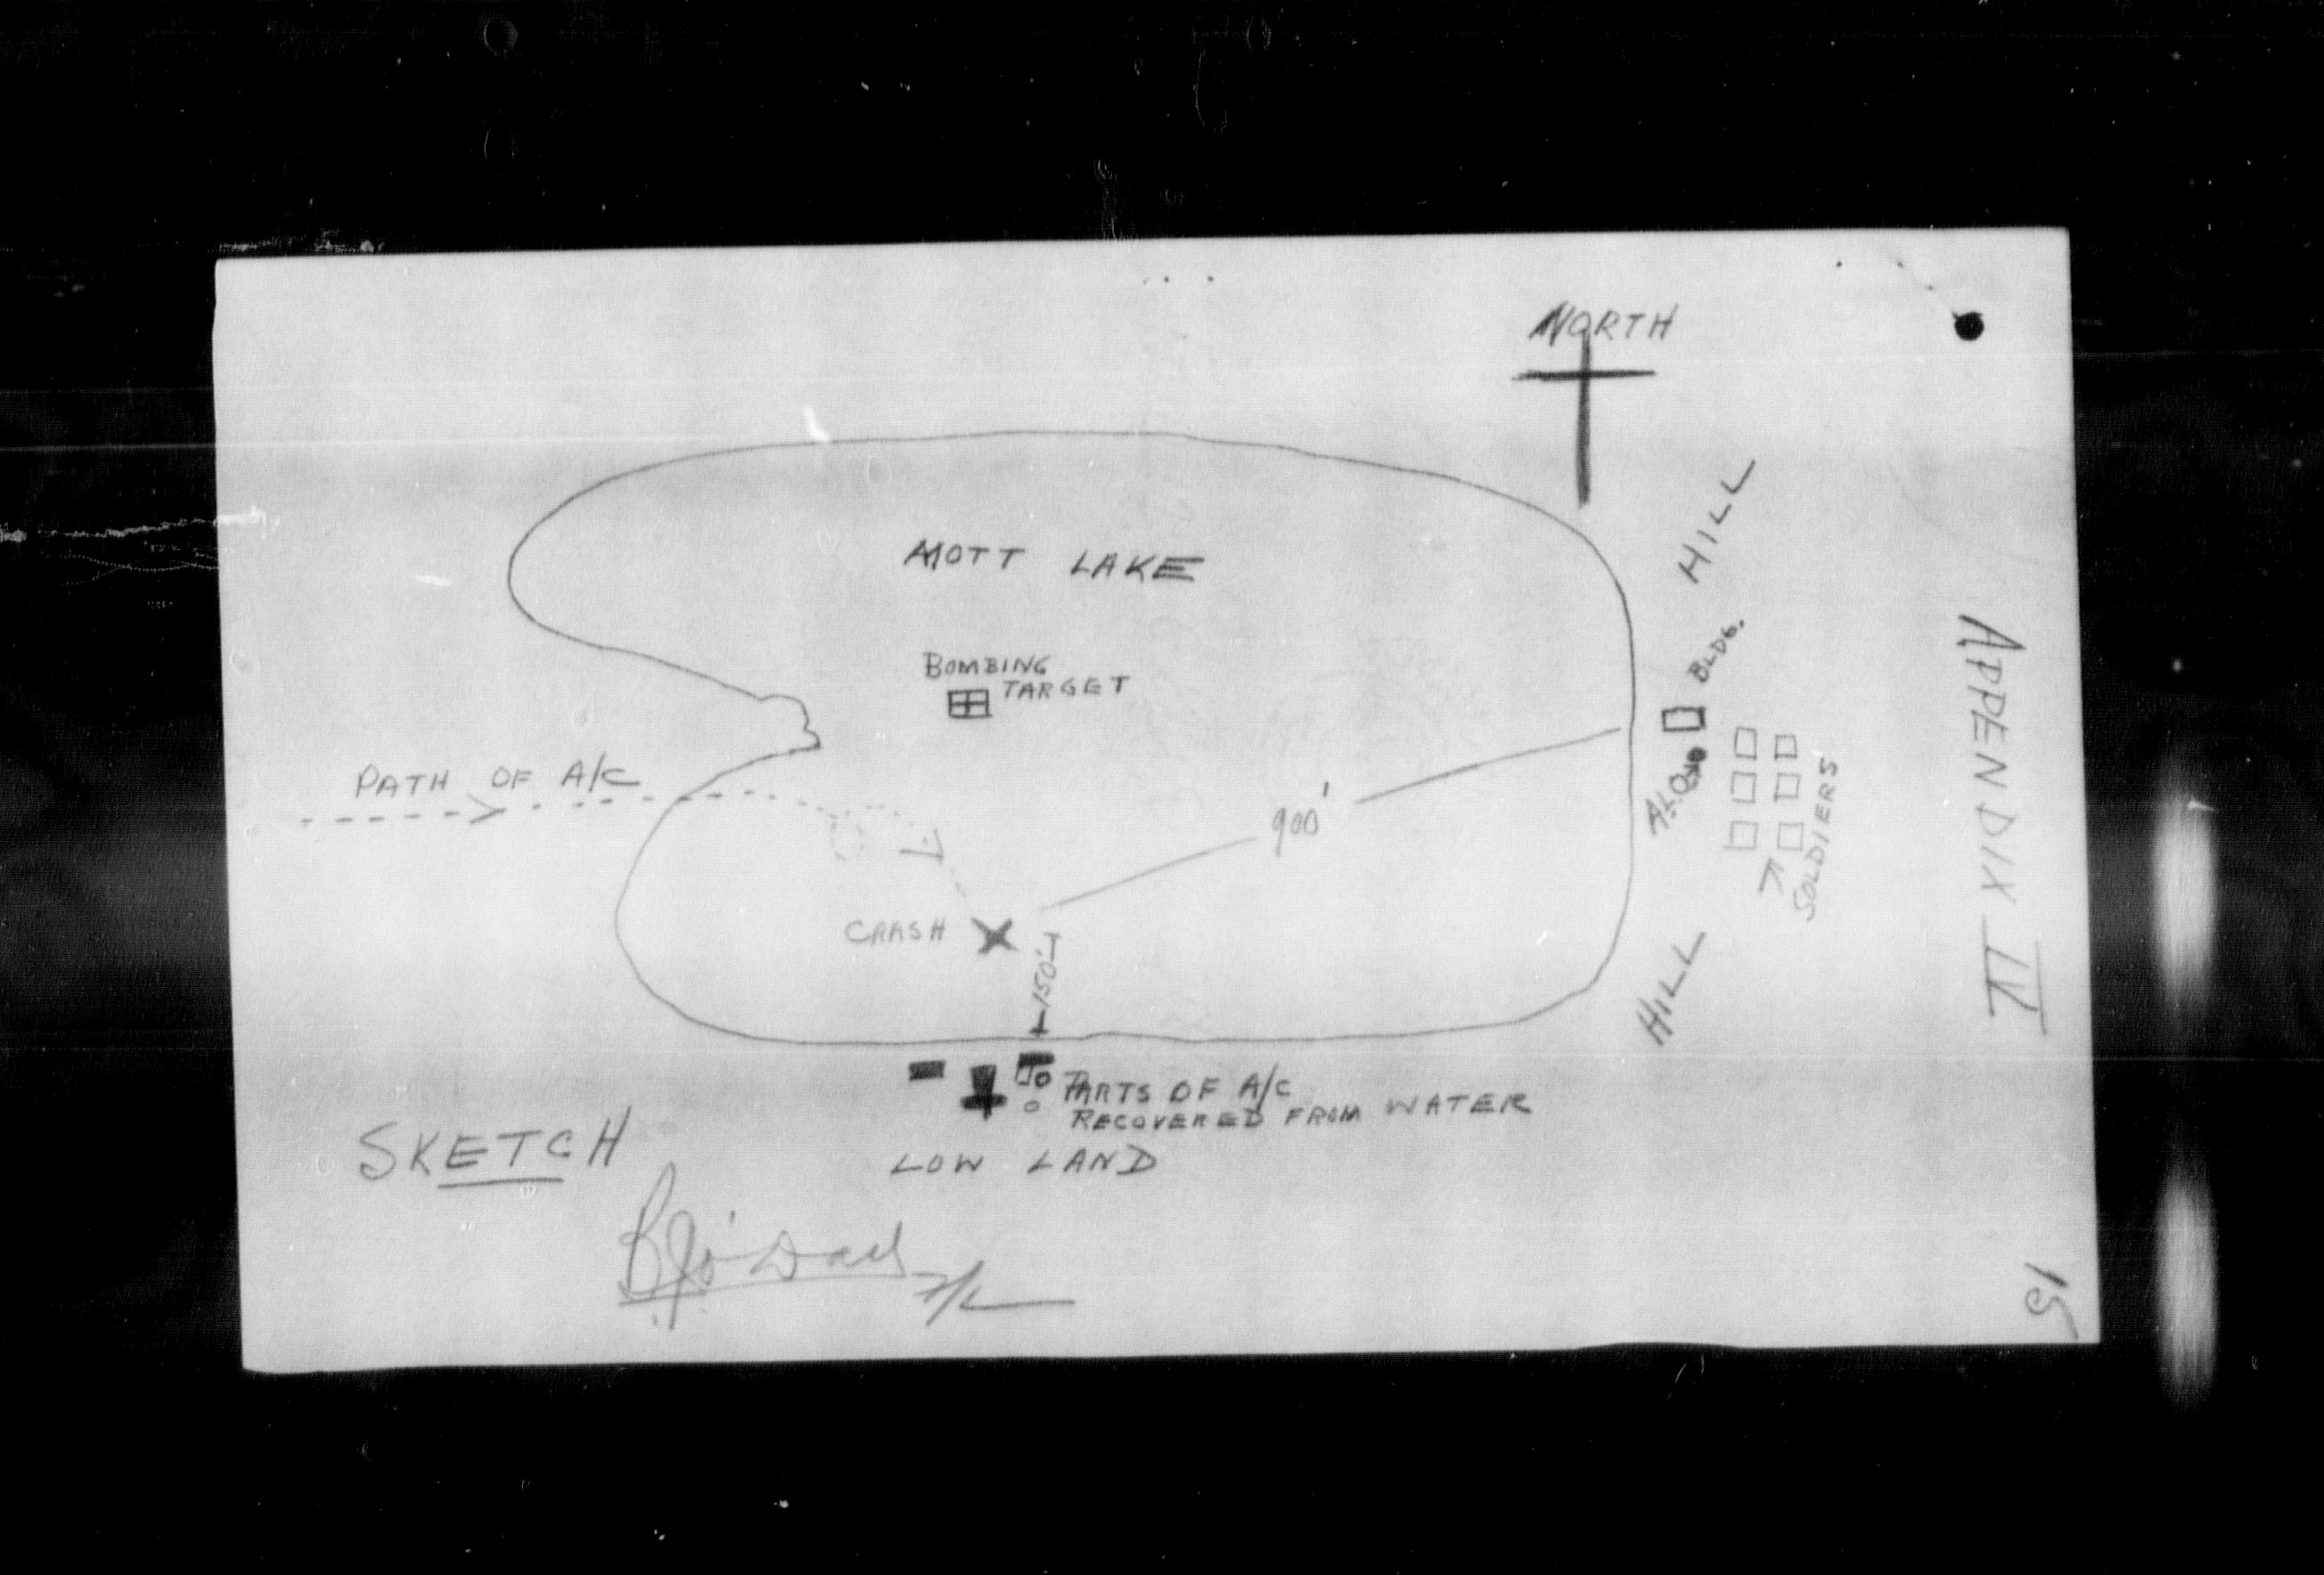 NORTH
HILL
MOTT LAKE
BLDG.
BOMBING
TARGET
APPENDIX IV
PATH OF A/C
900'
A.L.O.
SOLDIERS
CRASH
150'
HILL
PARTS OF A/C
RECOVERED FROM WATER
SKETCH
LOW LAND
F/L
15